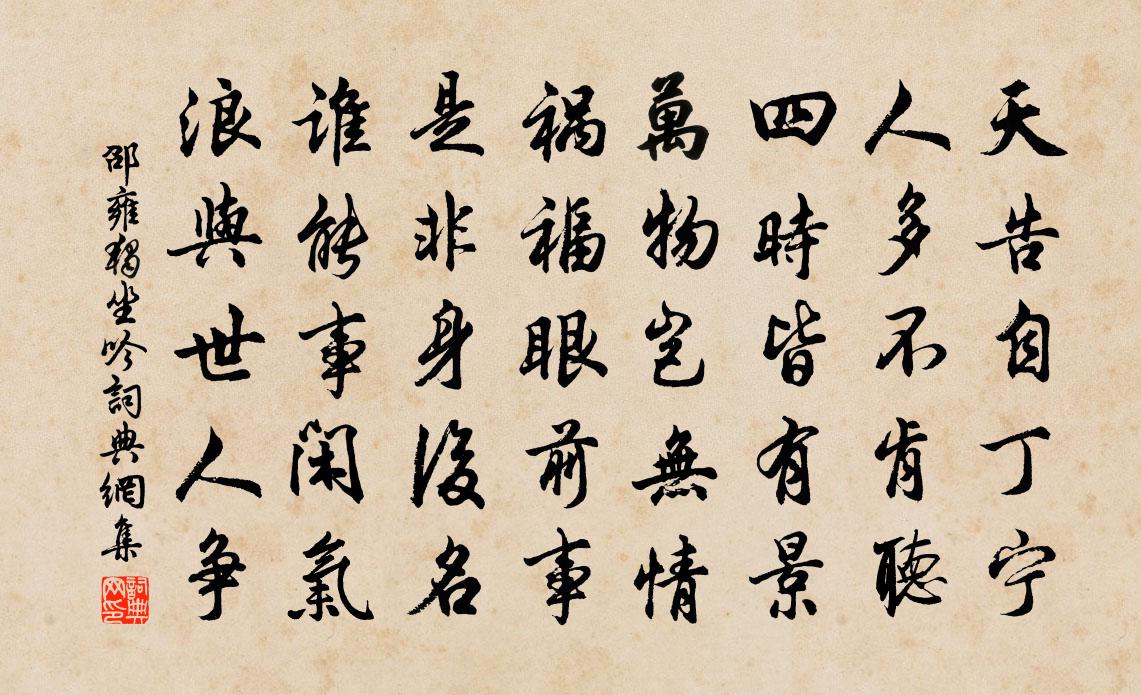 天告自丁宁
人多不肯聽
四時皆有景
萬物豈無情
禍福眼前事
是非身後名
誰能事閑氣
浪與世人争
邵雍獨坐吟詞典網集
詞典網印